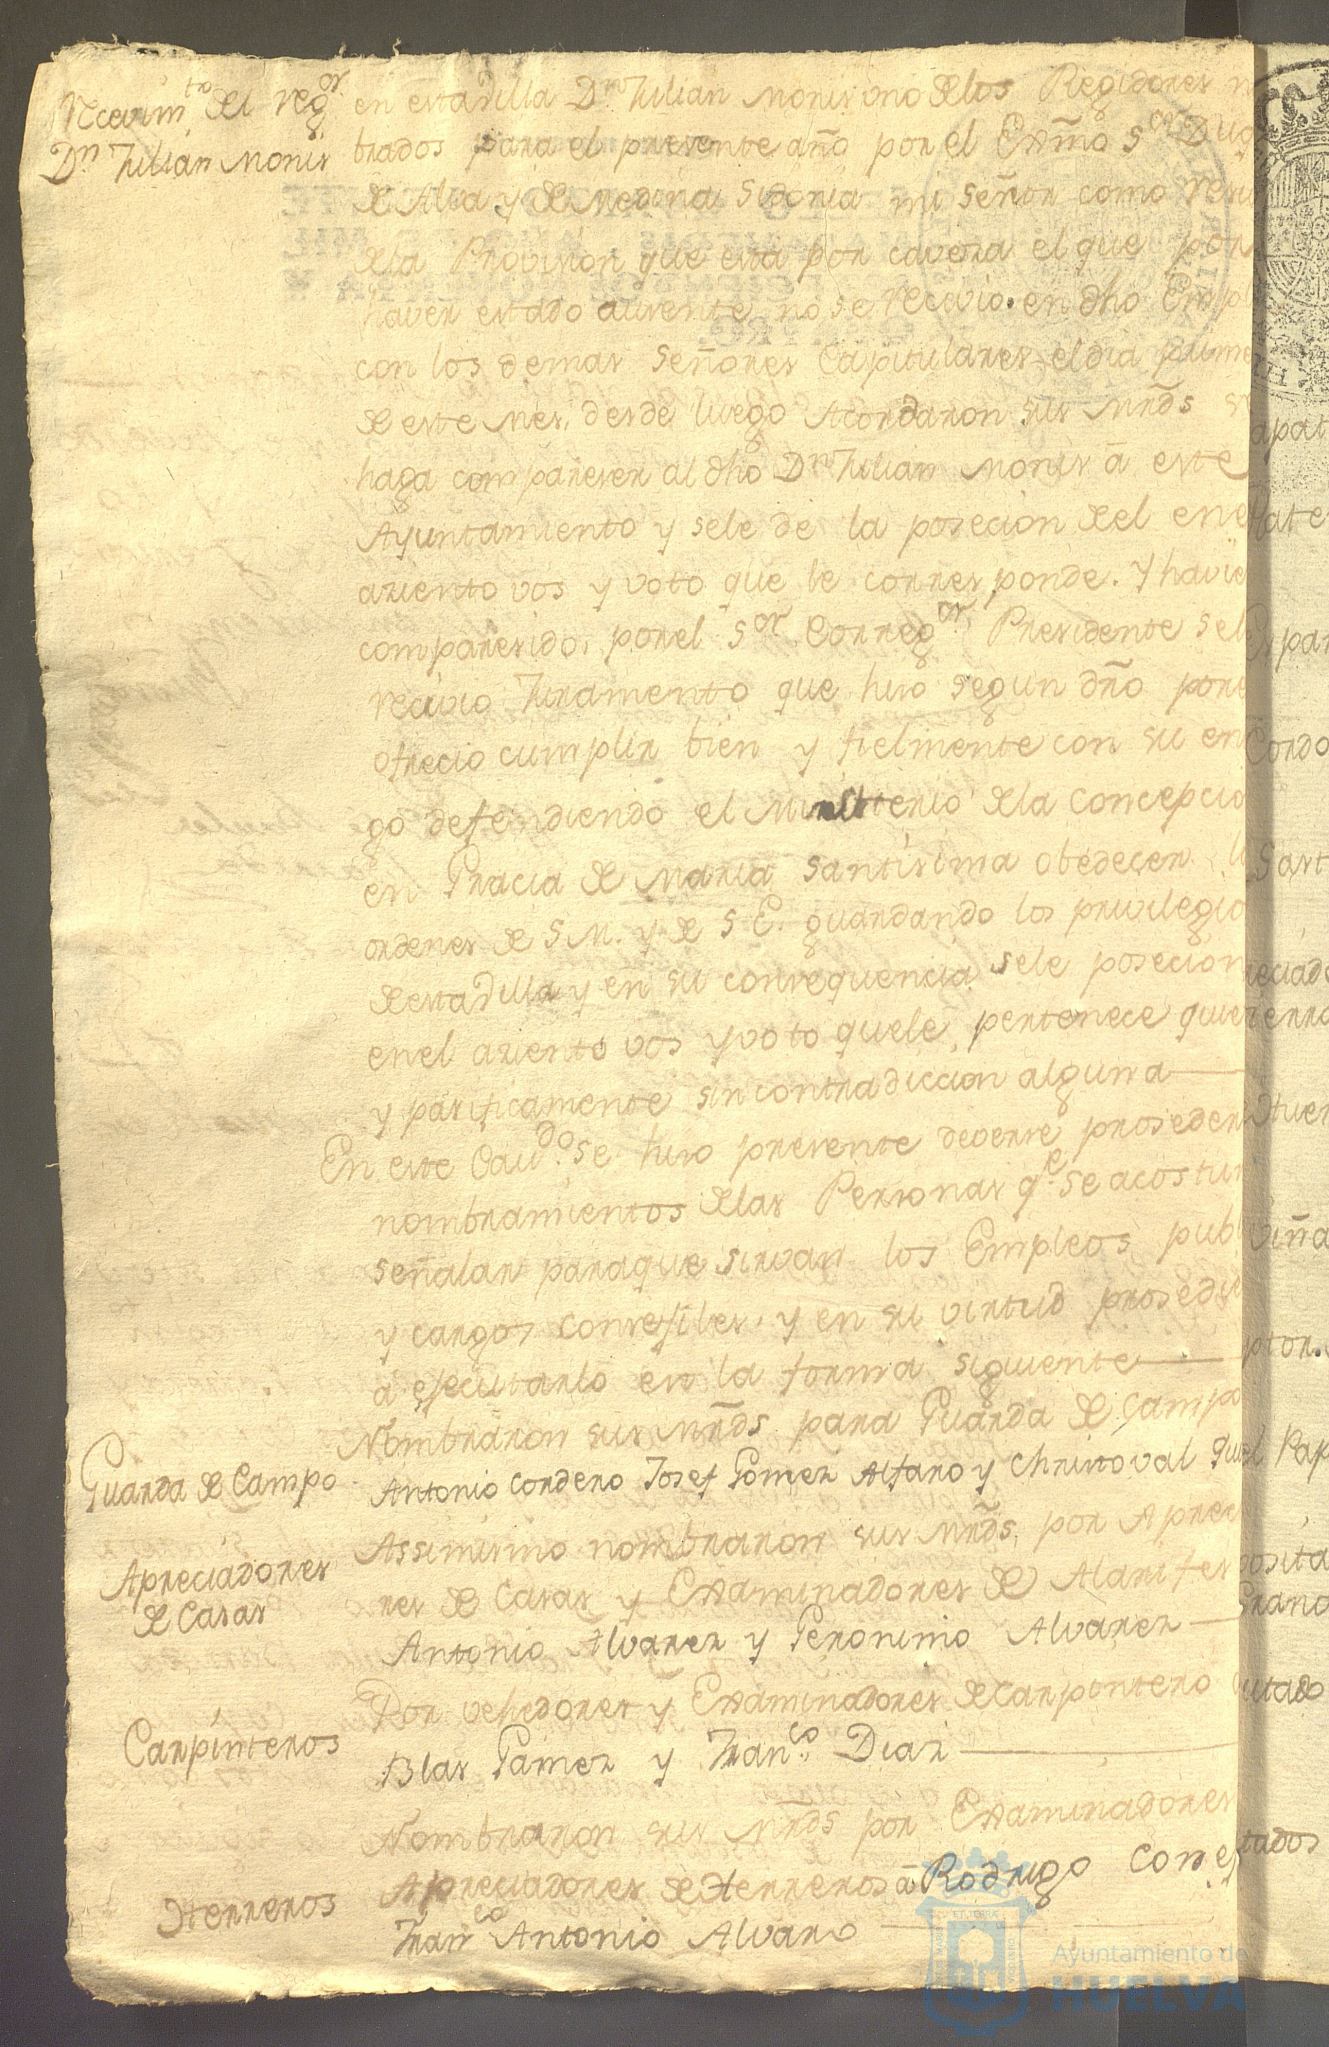 Recevim.to del reg.or
Dn Julian Monis
en esta villa Dn Julian Monis vno de los Regidores
brados para el presente año por el Exmo Sor Duq
de Alva y de Medina Sidonia mi señor como
de la Provision que esta por cavesa el que por
haver estado ausente no se recevio en dho Empl
con los demas señores Capitulares el dia prime
de este mes, desde luego Acordaron sus mrds se
haga comparecer al dho Dn Julian Monis â este
Ayuntamiento y sele de la posecion de el
asiento vos y voto que le corresponde. Y havie
comparesido, por el Sor Correg.or Presidente sele
recivio Juramento que hiso segun dro
ofrecio cumplir bien y fielmente con su en
go defendiendo el Misterio de la Concepcio
en Gracia de Maria Santisima obedecer
ordenes de S M. y de S E. guardando los privilegio
de esta villa y en su consequencia sele posecion
en el asiento vos y voto que le pertenece quie
y pasificamente sin contradiccion alguna
En este Cav.do se hiso presente deverse proseder
nombramientos de las Personas q.e se acostu
señalar para que sirvan los Empleos pub
y cargos consejiles, y en su virtud prosedie
a ejecutarlo en la forma siguiente
Guarda de Campo
Nombraron sus mrds para Guarda de Campo
Antonio Cordero Josef Gomez Alfaro y Christoval
Apreciadores
de Casas
Assimismo nombraron sus mrds por Aprecia
res de Casas y Examinadores de Alarifes
Antonio Alvarez y Geronimo Alvarez
Carpinteros
Por vehedores y Examinadores de Carpintero
Blas Gamez y Fran.co Diaz
Herreros
Nombraron sus mrds por Examinadores
Apreciadores de Herreros â Rodrigo
Fran.co Antonio Alvaro
Ayuntamiento de
HUELVA